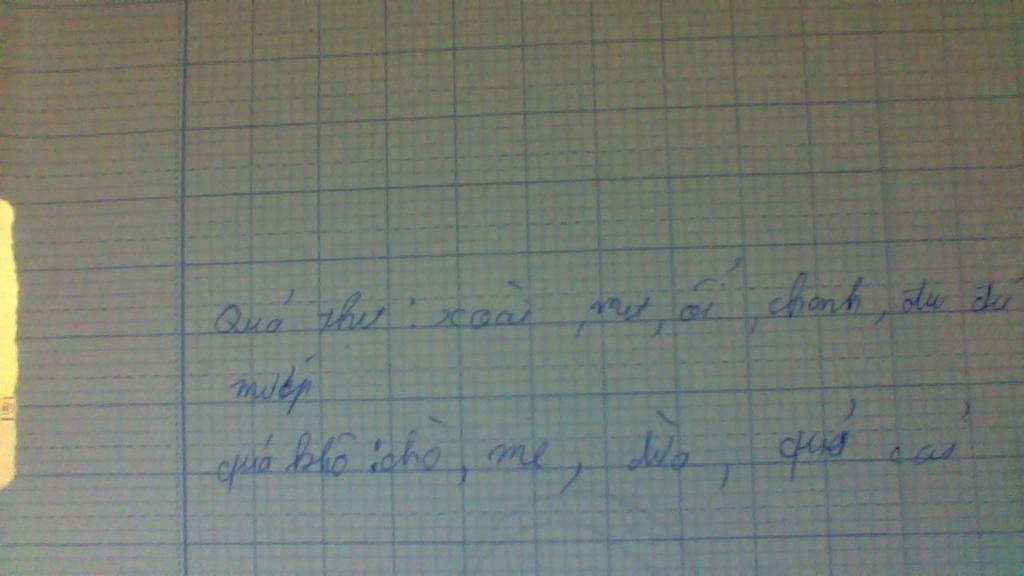 Quả thịt : xoài , me, ổi , chanh, đu đủ
mướp
quả khô : chò, me , dừa , quả cải